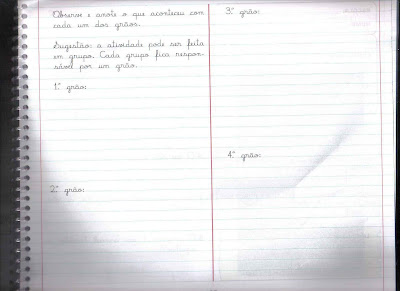 Observe e anote o que aconteceu com
cada um dos grãos.
Sugestão: a atividade pode ser feita
em grupo. Cada grupo fica respon-
sável por um grão.
1º grão:
2º grão:
3º grão:
4º grão: